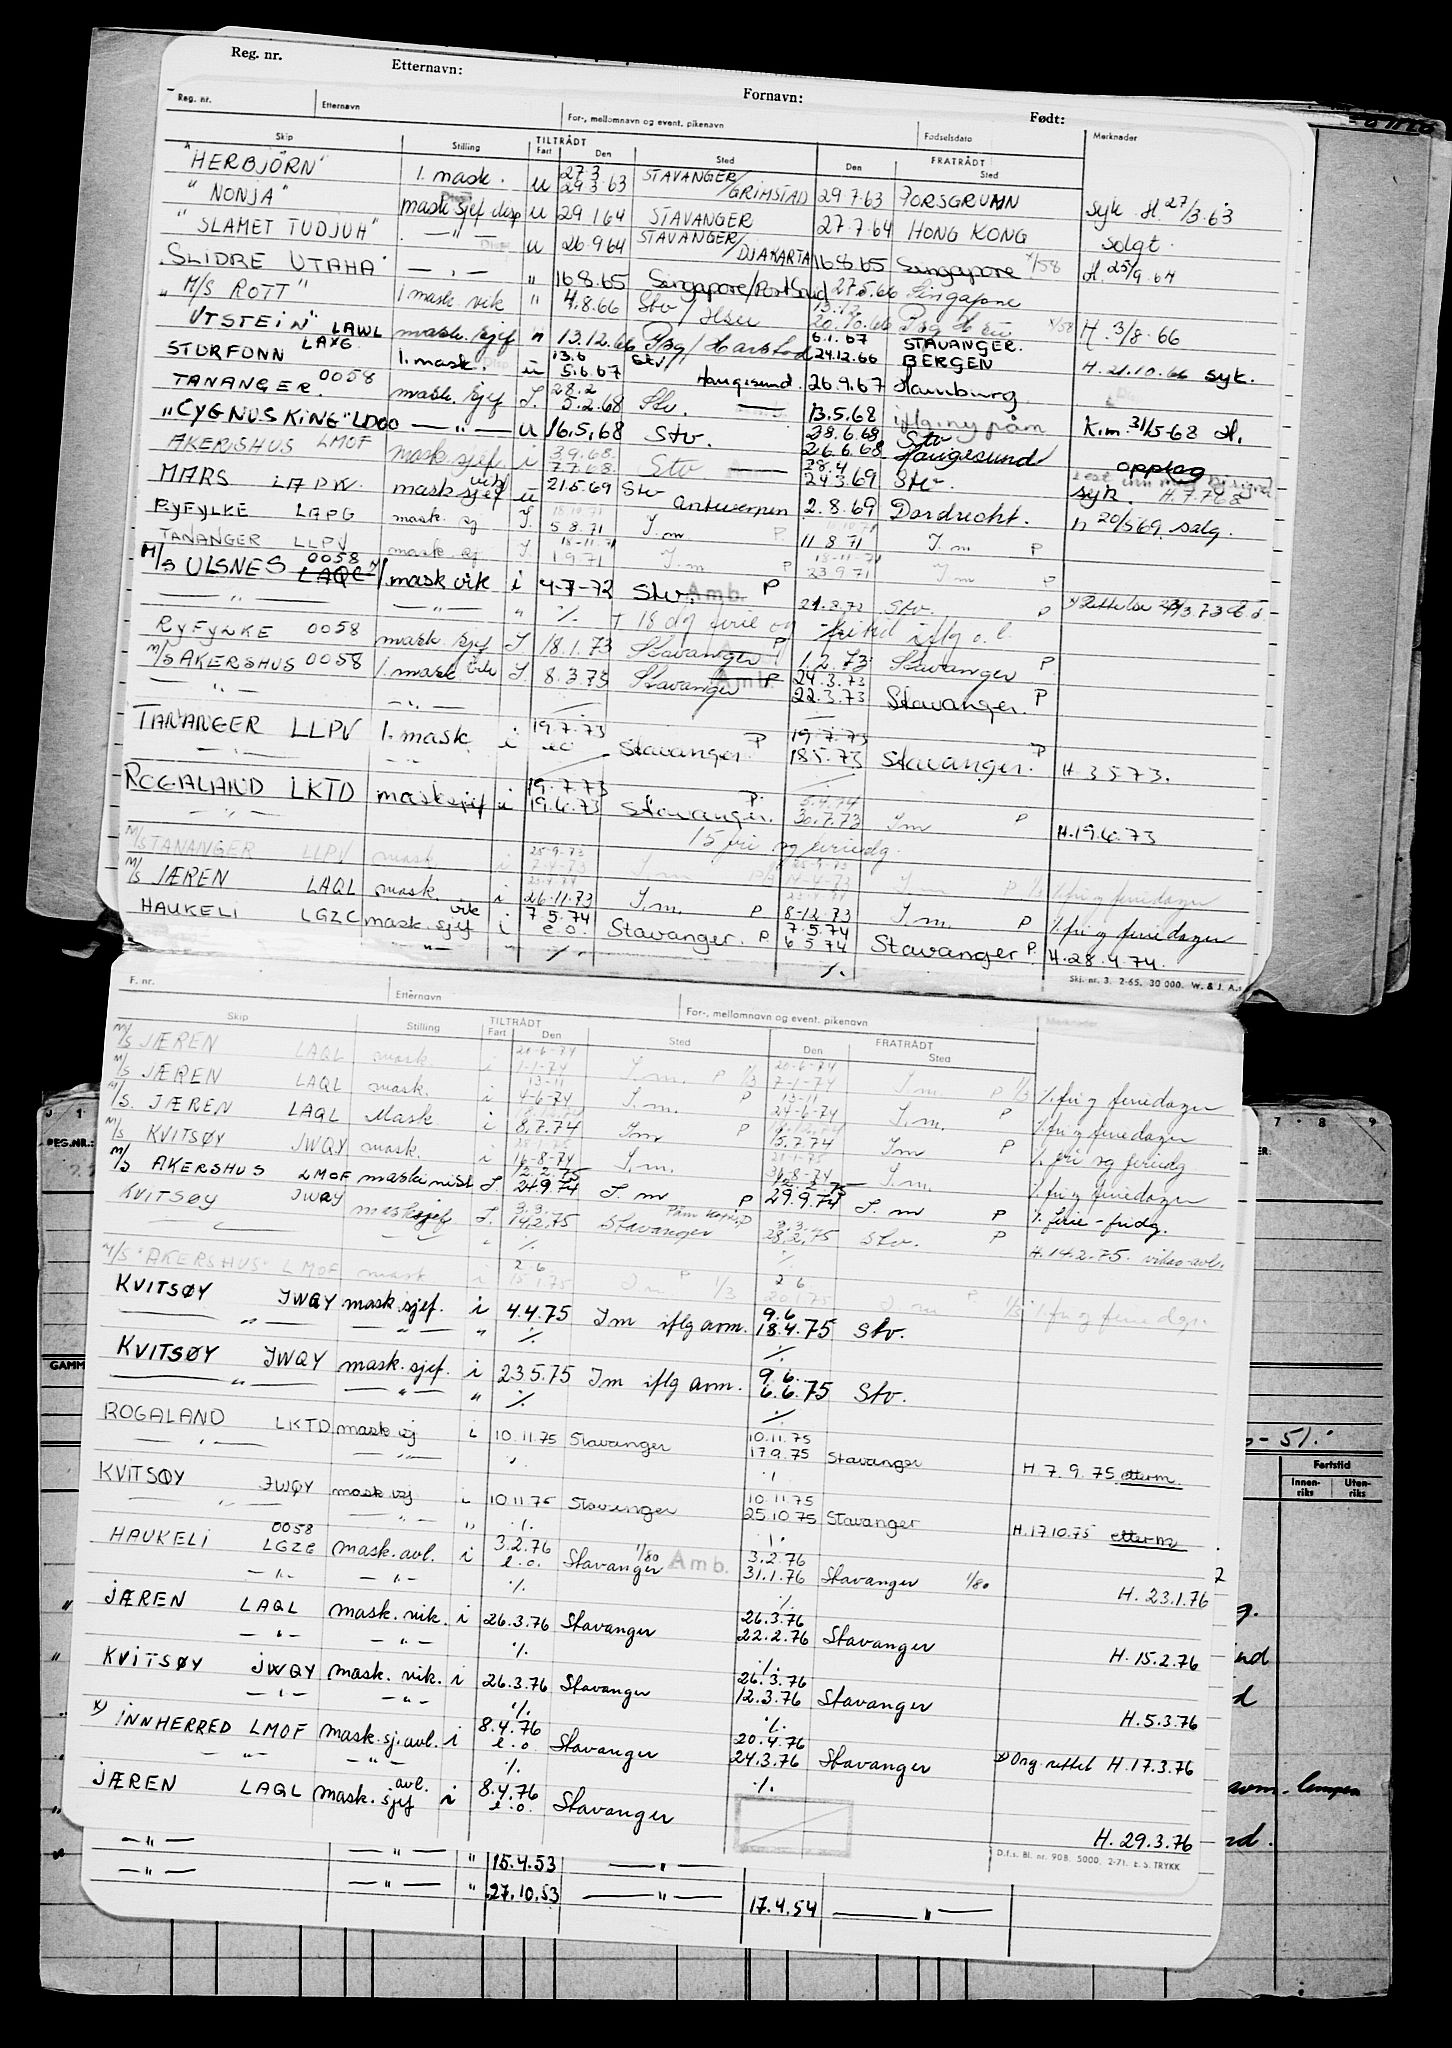 Reg. nr. Etternavn: Fornavn: Født:
Reg. nr. Etternavn For-, mellomnavn og event. pikenavn Fødselsdato Merknader
Skip Stilling TILTRÅDT Fart Den Sted Den FRATRÅDT Sted
"HERBJÖRN" 1. mask. u 27.3 29.3.63 STAVANGER/GRIMSTAD 29.7.63 PORSGRUNN syk H. 27/3.63
"NONJA" mask sjef disp u 29.1.64 STAVANGER 27.7.64 HONG KONG solgt.
"SLAMET TUDJUH" — " — u 26.9.64 STAVANGER/DJAKARTA 16.8.65 Singapore H. 25/9.64
SLIDRE UTAHA — " — " 16.8.65 Singapore/Port Said 27.5.66 Singapore
"M/S ROTT" 1 mask vik " 4.8.66 Stv / 13.12 20.10.66 H. 3/8.66
UTSTEIN" LAWL mask. sjef " 13.12.66 Bg / Harstad 6.1.67 24.12.66 STAVANGER. BERGEN H. 21.10.66 syk.
STORFONN LAXG 1. mask. u 13.6 5.6.67 Stv Haugesund. 26.9.67 Hamburg
TANANGER. 0058 mask. sjef I. 28.2 5.2.68 Stv. — 13.5.68 iflg. ny påm K.m. 31/5-68 H.
"CYGNUS KING" LDOO — " — u 16.5.68 Stv. 28.6.68 26.6.68 Stv Haugesund opplag
AKERSHUS LMOF mask sjef i 3.9.68 7.7.68 Stv — 28.4 24.3.69 Stv. syk. H. 7.7.68
MARS LAPW mask sjef vik u 21.5.69 Stv Antwerpen 2.8.69 Dordrecht. n 20/5 69 salg.
RYFYLKE LAPG mask. sj I. 5.8.71 I.m P 11.8.71 I.m P
TANANGER LLPV mask. sj I. 18-11-71 1.9.71 I.m P 18-11-71 23.9.71 I.m P
M/S ULSNES 0058 LAQC 1 mask vik i 4-7-72 Stv. Amb. P
— " — — " — " % + 18 dg ferie og fritid iflg o.l. 21.8.72 Stv. P
RYFYLKE 0058 mask. sjef I 18.1.73 Stavanger P 1.2.73 Stavanger P
M/S AKERSHUS 0058 1. mask vik I. 8.3.75 Stavanger Amb. P 24.3.73 22.3.73 Stavanger. P
— " — — " —
TANANGER LLPV 1. mask i 19.7.73 e.o Stavanger. P 19.7.73 18.5.73 Stavanger. P H. 3 5 73.
— " —
ROGALAND LKTD mask sjef i 19.7.73 19.6.73 Stavanger. P. 5.4.74 30.7.73 I m P H. 19.6.73
— " — 15 fri og feriedg.
M/S TANANGER LLPV mask. i 25-9-73 7-4-73 I.m 25-9-73 14-4-73 I.m P % fri og feriedager
M/S JÆREN LAQL mask. i 26.11.73 I.m. P 8-12.73 I.m. P % fri og feriedager
HAUKELI LGZC mask. sjef vik i 7.5.74 e.o. Stavanger. P 7.5.74 6 5 74 Stavanger P. H. 28.4.74.
— " — " % %
Ski. nr. 3. 2-65. 30 000. W. & J. A.s
F. nr. Etternavn For-, mellomnavn og event. pikenavn Merknader
Skip Stilling TILTRÅDT Fart Den Sted Den FRATRÅDT Sted
M/S JÆREN LAQL mask. i 20-6-74 1-1-74 I.m. P 1/3 20-6-74 7-1-74 I.m. P 1/3 % fri og feriedager
M/S JÆREN LAQL mask. i 13-11 4-6-74 I.m. P 13-11 24-6-74 I.m. P % fri og feriedager
M/S. JÆREN LAQL Mask i 8.7.74 I m P 15.7.74 I m P % fri og feriedg
M/S KVITSØY JWQY mask. i 16-8-74 I.m. 31-8-74 I.m. % fri og feriedager
M/S AKERSHUS LMOF maskinist I 12.2.75 24.9.74 I. m P 12.2.75 29.9.74 I. m P % ferie-fridg.
KVITSØY JWQY mask sjef I. 3.3. 14.2.75 Stavanger 3.3. 28.2.75 Stv. P H. 14.2.75. vikar-avl.
" % %
M/S "AKERSHUS" LMOF mask. i 2.6 I.m. P 1/3 2 6 20.1.75 I. m P % fri og feriedgr.
KVITSØY JWQY mask. sjef. i 4.4.75 Im iflg avm. 9.6 18.4.75 Stv.
— " — — " — " % %
KVITSØY JWQY mask. sjef. i 23.5.75 Im iflg avm. 9.6. 6.6.75 Stv.
— " — — " — " % %
ROGALAND LKTD mask sj i 10.11.75 Stavanger 10.11.75 17.9.75 Stavanger H. 7.9.75 etterm.
— " — — " — % %
KVITSØY JWQY mask sj i 10.11.75 Stavanger 10.11.75 25.10.75 Stavanger H. 17.10.75 etterm
— " — — " — " % %
HAUKELI 0058 LGZC mask. avl. i 3.2.76 e.o. Stavanger 1/80 Amb. 3.2.76 31.1.76 Stavanger 1/80 H. 23.1.76
— " — — " — % %
JÆREN LAQL mask. vik. i 26.3.76 Stavanger 26.3.76 22.2.76 Stavanger H. 15.2.76
— " — — " — % %
KVITSØY JWQY mask. vik. i 26.3.76 Stavanger 26.3.76 12.3.76 Stavanger H. 5.3.76
— " — — " — % %
x) INNHERRED LMOF mask. sj. avl. i 8.4.76 e.o. Stavanger 20.4.76 24.3.76 Stavanger x) Org. rettet H. 17.3.76
— " — — " — % %
JÆREN LAQL mask. sjef avl. i 8.4.76 e.o. Stavanger H. 29.3.76
D.f.s. Bl. nr. 90B. 5000. 2-71. E.S. TRYKK
— " — — " — " 15.4.53 — " —
— " — — " — " 27.10.53 — " — 17.4.54 — " —
REG.NR.:
GAMM
7 8 9
- 51.
Fartstid
Innen-riks Uten-riks
avm. lempen